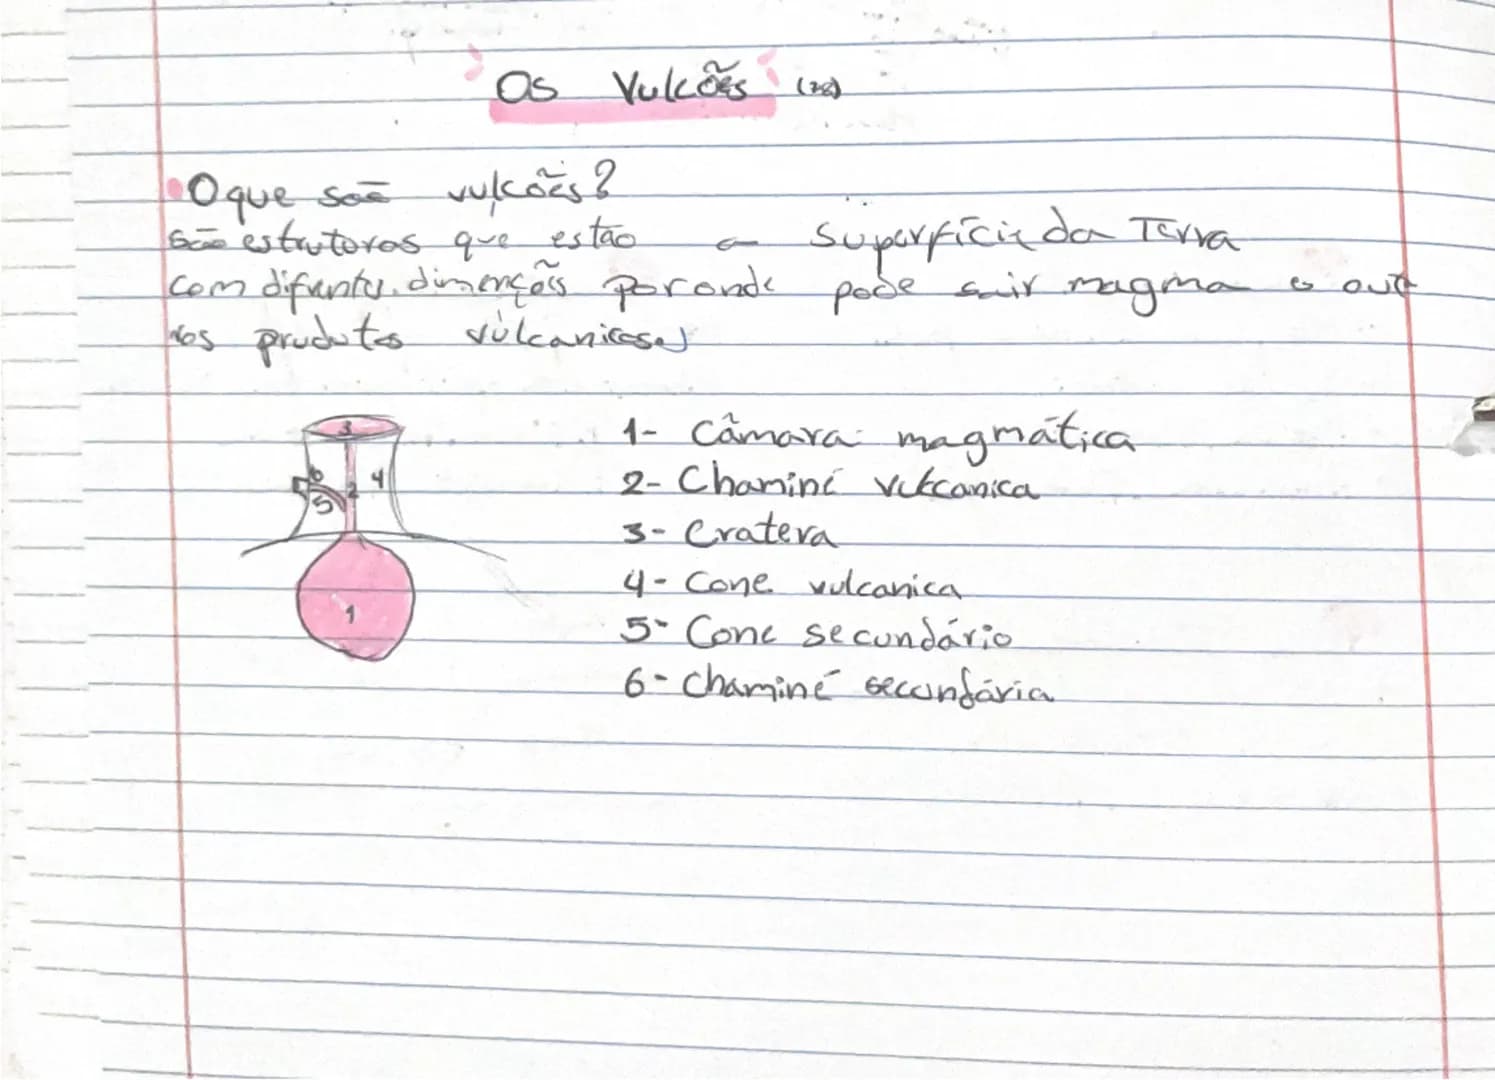 Os Vulcões (28)
O que são vulcões?
são estruturas que estão a superfície da Terra
com difrentes dimenções por onde pode sair magma e out
ros produtos vulcanicos.
3
6 4
5 2
1
1- Câmara magmática
2- Chaminé vulcanica
3- Cratera
4- Cone vulcanica
5- Cone secundário
6- chaminé secundária